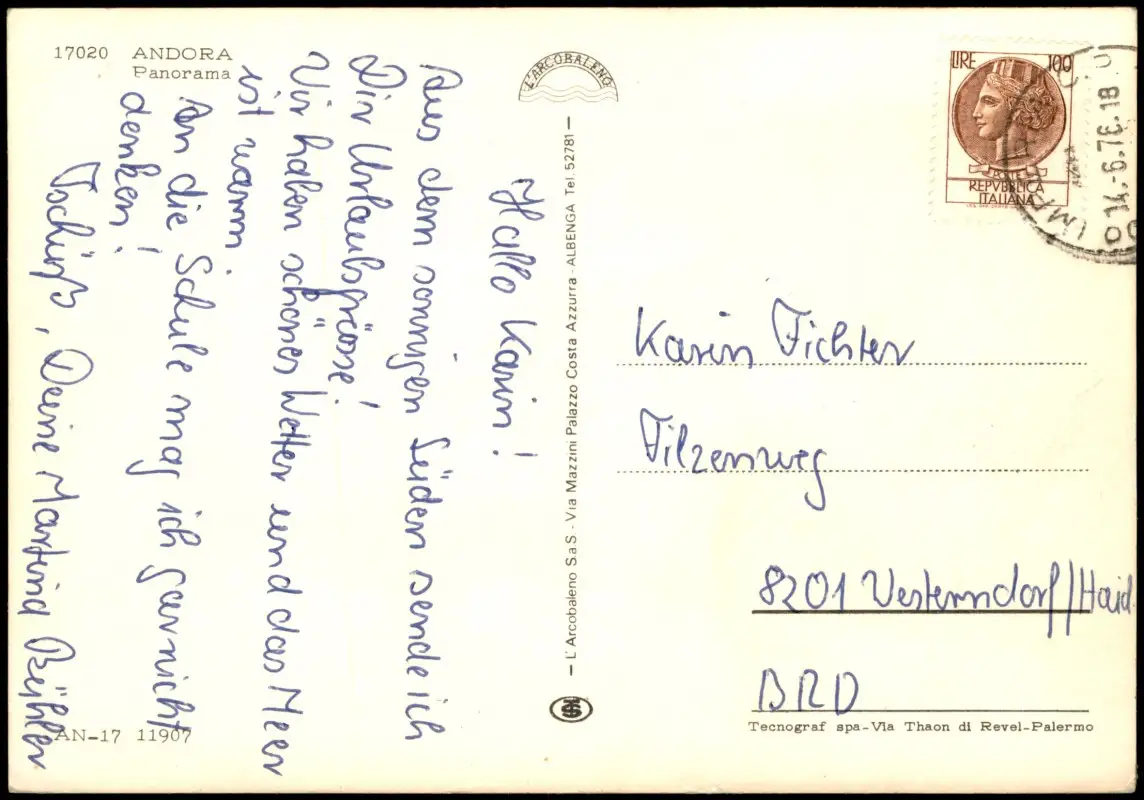 17020 ANDORA
Panorama
Hallo Karin!
Aus dem sonnigen Süden sende ich
Dir Urlaubsgrüsse!
Wir haben schönes Wetter und das Meer
ist warm.
An die Schule mag ich garnicht
denken!
Tschüß, Deine Martina Bühler
AN-17 11907
L'ARCOBALENO
— L'Arcobaleno SaS - Via Mazzini Palazzo Costa Azzurra - ALBENGA Tel. 52781 —
LIRE 100
POSTE
REPVBBLICA
ITALIANA
14.-6.76.18
Karin Fichter
Filzenweg
8201 Westerndorf/Haid
BRD
Tecnograf spa-Via Thaon di Revel-Palermo